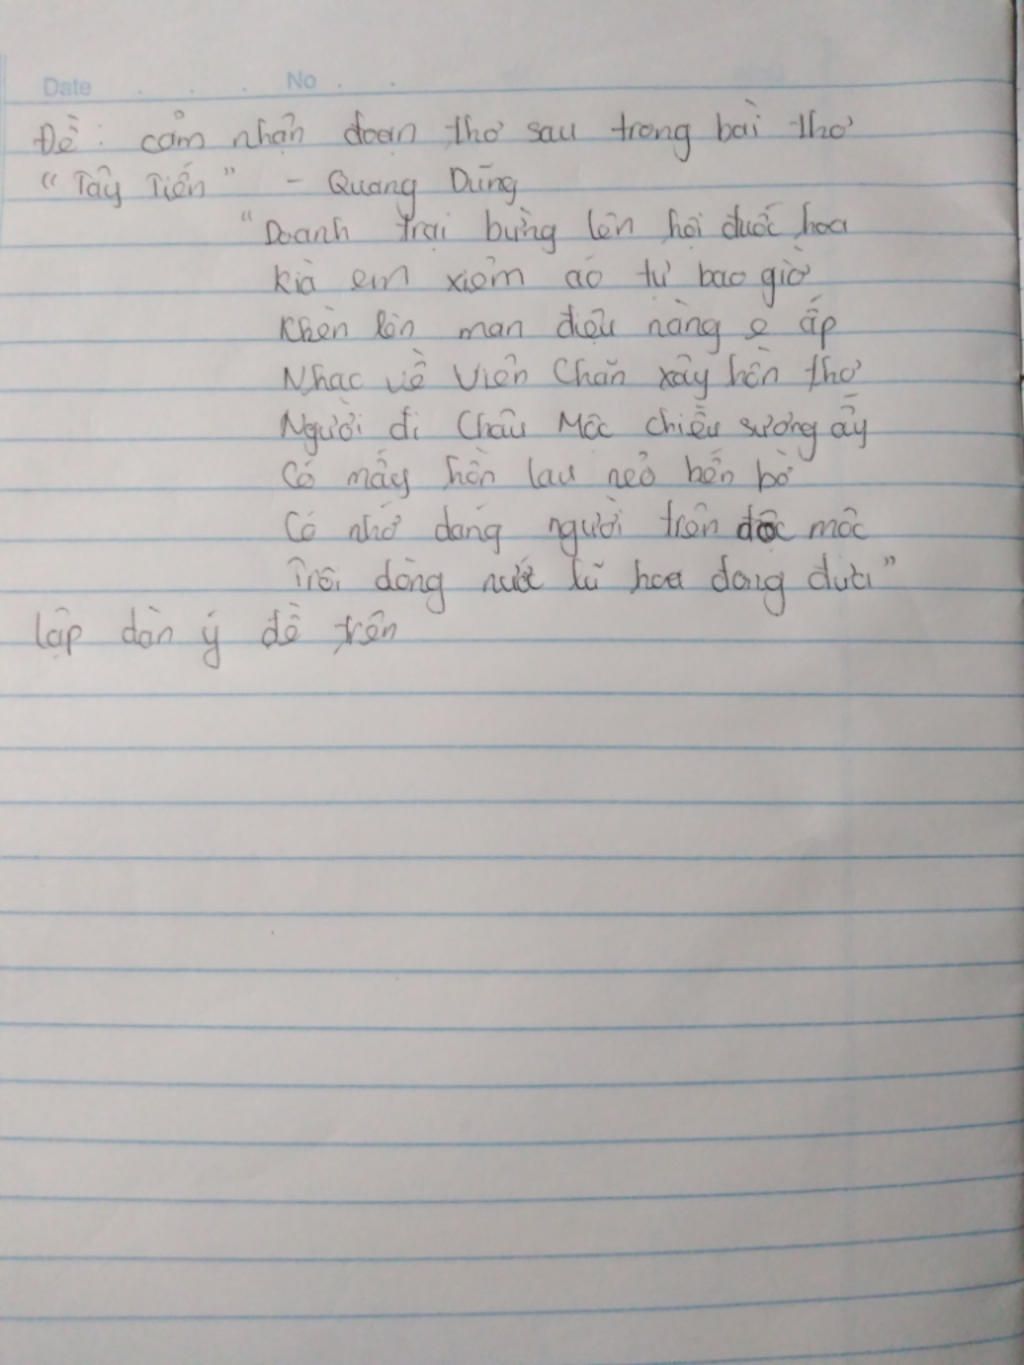 Date . . . No . .
Đề: cảm nhận đoạn thơ sau trong bài thơ
“Tây Tiến” – Quang Dũng
“Doanh trại bừng lên hội đuốc hoa
Kìa em xiêm áo tự bao giờ
Khèn lên man điệu nàng e ấp
Nhạc về Viên Chăn xây hồn thơ
Người đi Châu Mộc chiều sương ấy
Có mấy hồn lau nẻo bến bờ
Có nhớ dáng người trên độc mộc
Trôi dòng nước lũ hoa đong đưa”
lập dàn ý đề trên